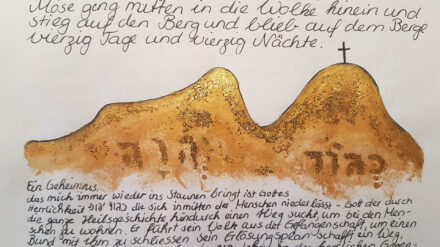 Mose ging mitten in die Wolke hinein und
stieg auf den Berg und blieb auf dem Berge
vierzig Tage und vierzig Nächte.
כבוד יהוה
Ein Geheimnis,
das mich immer wieder ins Staunen bringt ist Gottes
Herrlichkeit כבוד יהוה die sich inmitten der Menschen niederlässt - Gott der durch
die ganze Heilsgeschichte hindurch einen Weg sucht, um bei den Men-
schen zu wohnen. Er führt sein Volk aus der Gefangenschaft, um einen
Bund mit ihm zu schliessen. Sein Erlösungsplan schafft ein Weg,